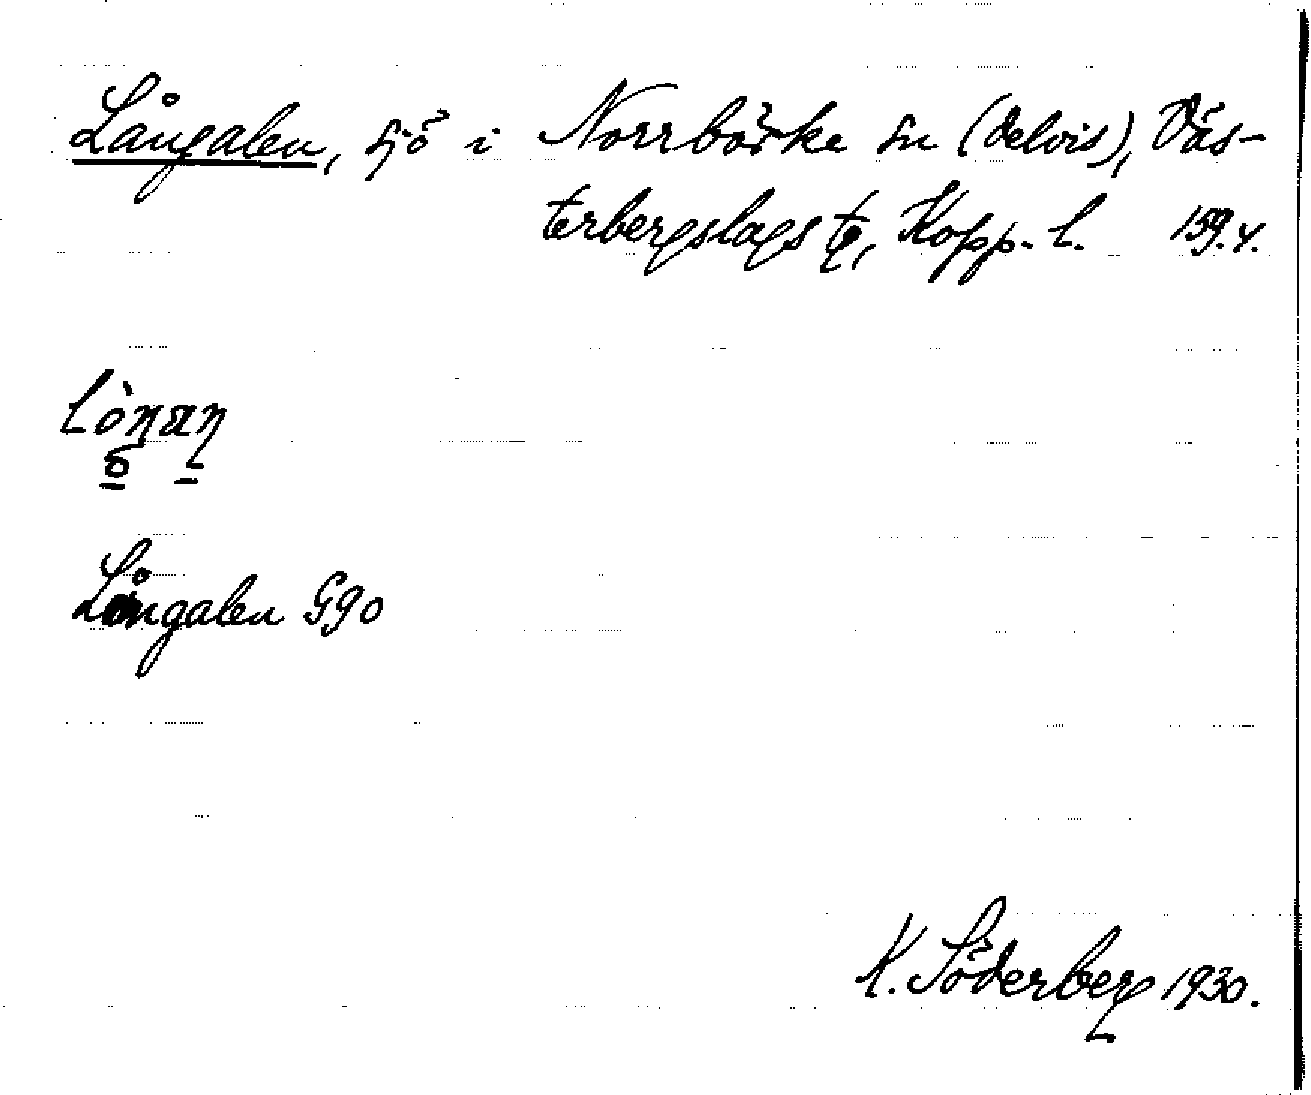 Långalen, sjö i Norrbärke sn (delvis), Väs-
terbergslags tg, Kopp. l. 159.4.
Långalen G90
K. Söderberg 1930.